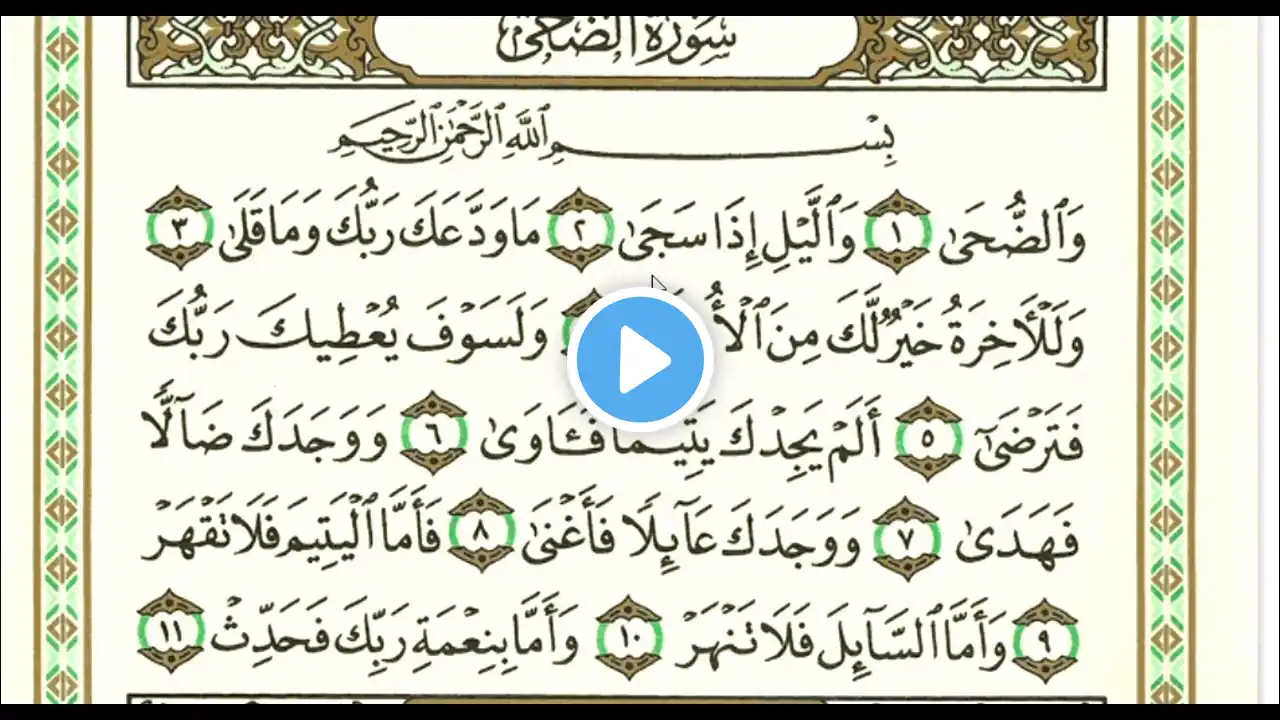 سُورَةُ الضُّحَىٰ
بِسْمِ ٱللَّهِ ٱلرَّحْمَٰنِ ٱلرَّحِيمِ
وَٱلضُّحَىٰ ١ وَٱلَّيْلِ إِذَا سَجَىٰ ٢ مَا وَدَّعَكَ رَبُّكَ وَمَا قَلَىٰ ٣
وَلَلْأَخِرَةُ خَيْرٌ لَّكَ مِنَ وَلَسَوْفَ يُعْطِيكَ رَبُّكَ
فَتَرْضَىٰٓ ٥ أَلَمْ يَجِدْكَ يَتِيمًا فَـَٔاوَىٰ ٦ وَوَجَدَكَ ضَآلًّا
فَهَدَىٰ ٧ وَوَجَدَكَ عَآئِلًا فَأَغْنَىٰ ٨ فَأَمَّا ٱلْيَتِيمَ فَلَا تَقْهَرْ
٩ وَأَمَّا ٱلسَّآئِلَ فَلَا تَنْهَرْ ١٠ وَأَمَّا بِنِعْمَةِ رَبِّكَ فَحَدِّثْ ١١